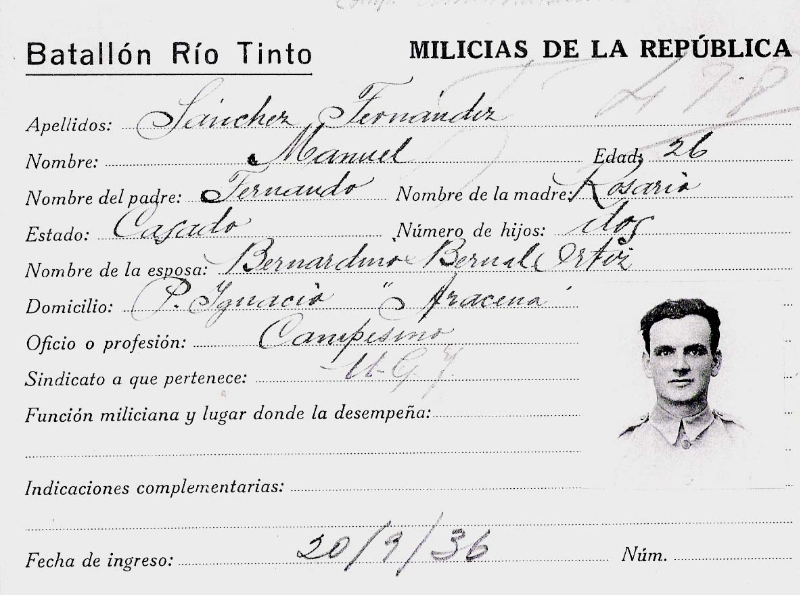 Batallón Río Tinto MILICIAS DE LA REPÚBLICA
478
Apellidos: Sánchez Fernández
Nombre: Manuel Edad: 26
Nombre del padre: Fernando Nombre de la madre: Rosario
Estado: Casado Número de hijos: dos
Nombre de la esposa: Bernardina Bernal Ortiz
Domicilio: P. Ignacio " Aracena
Oficio o profesión: Campesino
Sindicato a que pertenece: U.G.T
Función miliciana y lugar donde la desempeña:
Indicaciones complementarias:
Fecha de ingreso: 20/9/36 Núm.